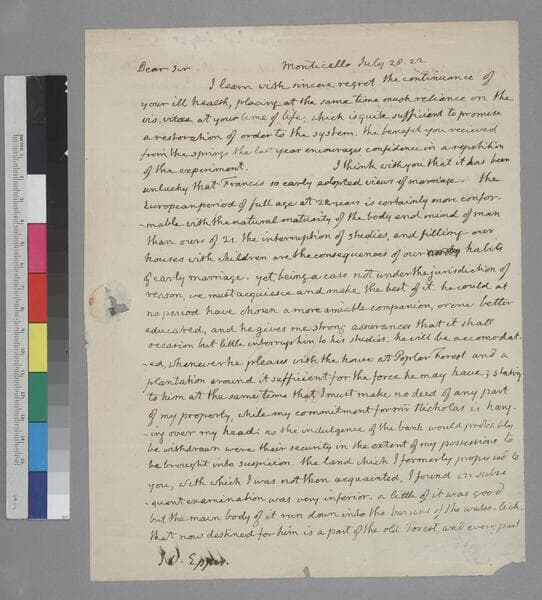 Dear Sir Monticello July 28 22
I learn with sincere regret the continuance of
your ill health, placing at the same time much reliance on the
vis vitae at your time of life, which is quite sufficient to promise
a restoration of order to the system. the benefit you recieved
from the springs the last year encourages confidence in a repetition
of the experiment. I think with you that it has been
unlucky that Francis so early adopted views of marriage. the
European period of full age at 25 years is certainly more confor-
-mable with the natural maturity of the body and mind of man
than ours of 21. the interruption of studies, and filling our
houses with children are the consequences of our habits
of early marriage. yet, being a case not under the jurisdiction of
reason, we must acquiesce and make the best of it. he could at
no period have chosen a more amiable companion, or one better
educated, and he gives me strong assurances that it shall
occasion but little interruption to his studies. he will be accomodat-
-ed, whenever he pleases with the house at Poplar Forest and a
plantation around it sufficient for the force he may have; stating
to him at the same time that I must make no deed of any part
of my property, while my commitment for mr Nicholas is hang-
-ing over my head: as the indulgence of the bank would probably
be withdrawn were their security in the extent of my possessions to
be brought into suspicion. the land which I formerly proposed to
you, with which I was not then acquainted, I found on subse
-quent examination was very inferior. a little of it was good
but the main body of it run down into the barrens of the water-lick.
that now destined for him is a part of the old Forest, and every part
J. W. Eppes.